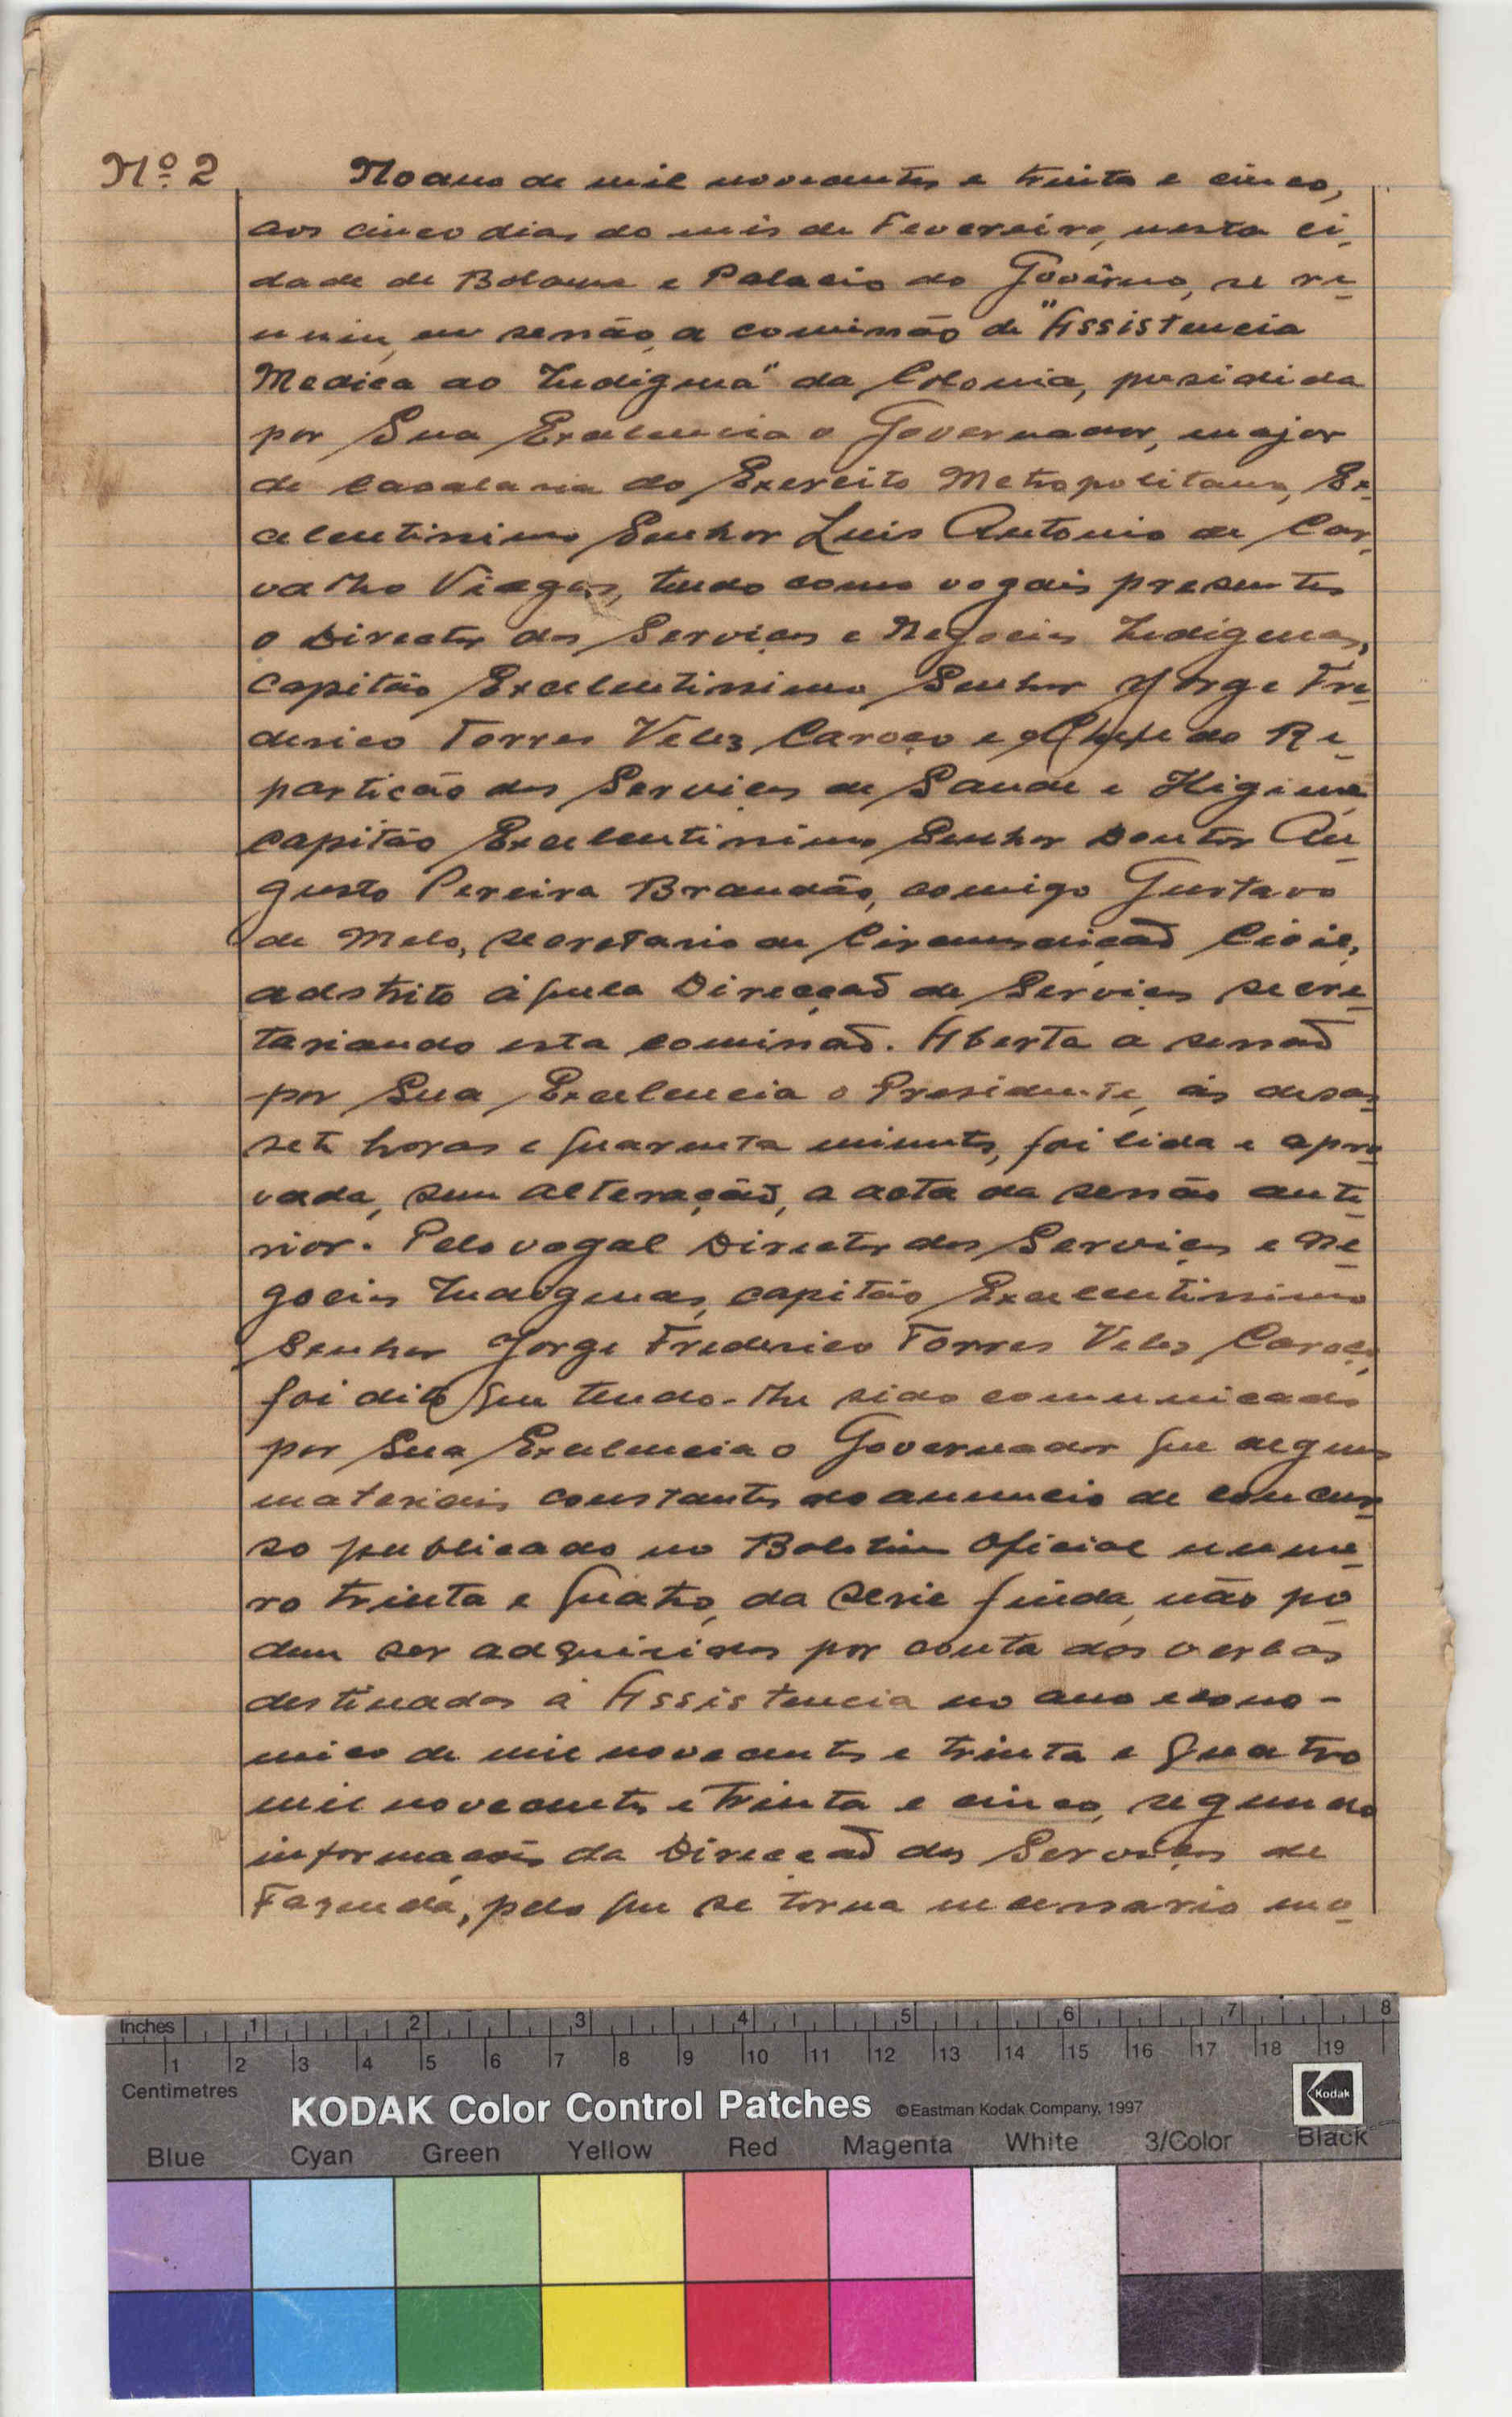 Nº 2
No ano de mil novecentos e trinta e cinco,
aos cinco dias do mês de Fevereiro, nesta ci-
dade de Bolama e Palacio do Govêrno, se re-
uniu, em sessão, a comissão de "Assistencia
Medica ao Indigena" da Colonia, presidida
por Sua Excelencia o Governador, major
de cavalaria do Exercito Metropolitano, Ex-
celentissimo Senhor Luis Antonio de Car-
valho Viegas, tendo como vogais presentes
o Director dos Serviços e Negocios Indigenas,
capitão Excelentissimo Senhor Jorge Fre-
derico Torres Velez Caroço e o Chefe da Re-
partição dos Serviços de Saude e Higiene
capitão Excelentissimo Senhor Doutor Au-
gusto Pereira Brandão, comigo Gustavo
de Melo, secretario de Circunscrição Civil,
adstrito áquela Direcçaõ de Serviços secre-
tariando esta comissaõ. Aberta a sessaõ
por Sua Excelencia o Presidente, ás desas-
sete horas e quarenta minutos, foi lida e apro-
vada, sem alteraçaõ, a acta da sessão ante-
rior. Pelo vogal Director dos Serviços e Ne-
gocios Indigenas, capitão Excelentissimo
Senhor Jorge Frederico Torres Velez Caroço,
foi dito que tendo-lhe sido comunicado
por Sua Excelencia o Governador que alguns
materiais constantes do anuncio de concur-
so publicado no Boletim Oficial nume-
ro trinta e quatro, da serie finda, não po-
dem ser adquiridos por conta das verbas
destinadas á Assistencia no ano econo-
mico de mil novecentos e trinta e quatro
mil novecentos e trinta e cinco, segundo
informações da Direcçaõ dos Serviços de
Fazenda, pelo que se torna necessario mo-
Inches 1 2 3 4 5 6 7 8
1 2 3 4 5 6 7 8 9 10 11 12 13 14 15 16 17 18 19
Centimetres
KODAK Color Control Patches ©Eastman Kodak Company, 1997 Kodak
Blue Cyan Green Yellow Red Magenta White 3/Color Black